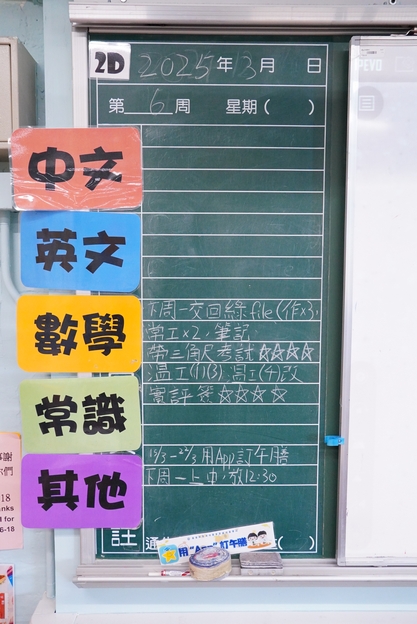 2D 2025年 3月 日
第 6 周 星期( )
中文
英文
數學
常識
其他
下周一交回綠file(作x3,
常工x2,筆記
帶三角尺考試☆☆☆☆
溫工(1)(3)溫工(4)改
實評簽☆☆☆☆
用App訂午膳
下周一上中,放12:30
註
用"App"訂午膳
( )